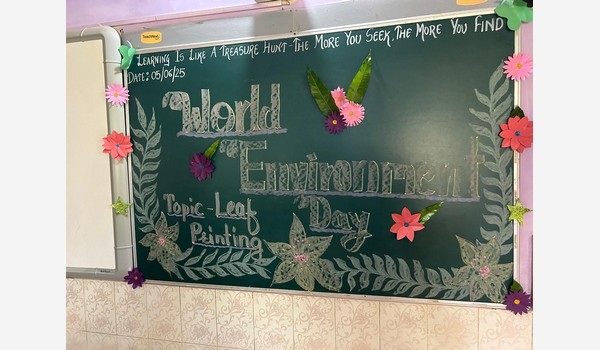 Learning Is Like A Treasure Hunt-The More You Seek, The More You Find
Date: 05/06/25
World
Environment
Day
Topic-Leaf
Printing